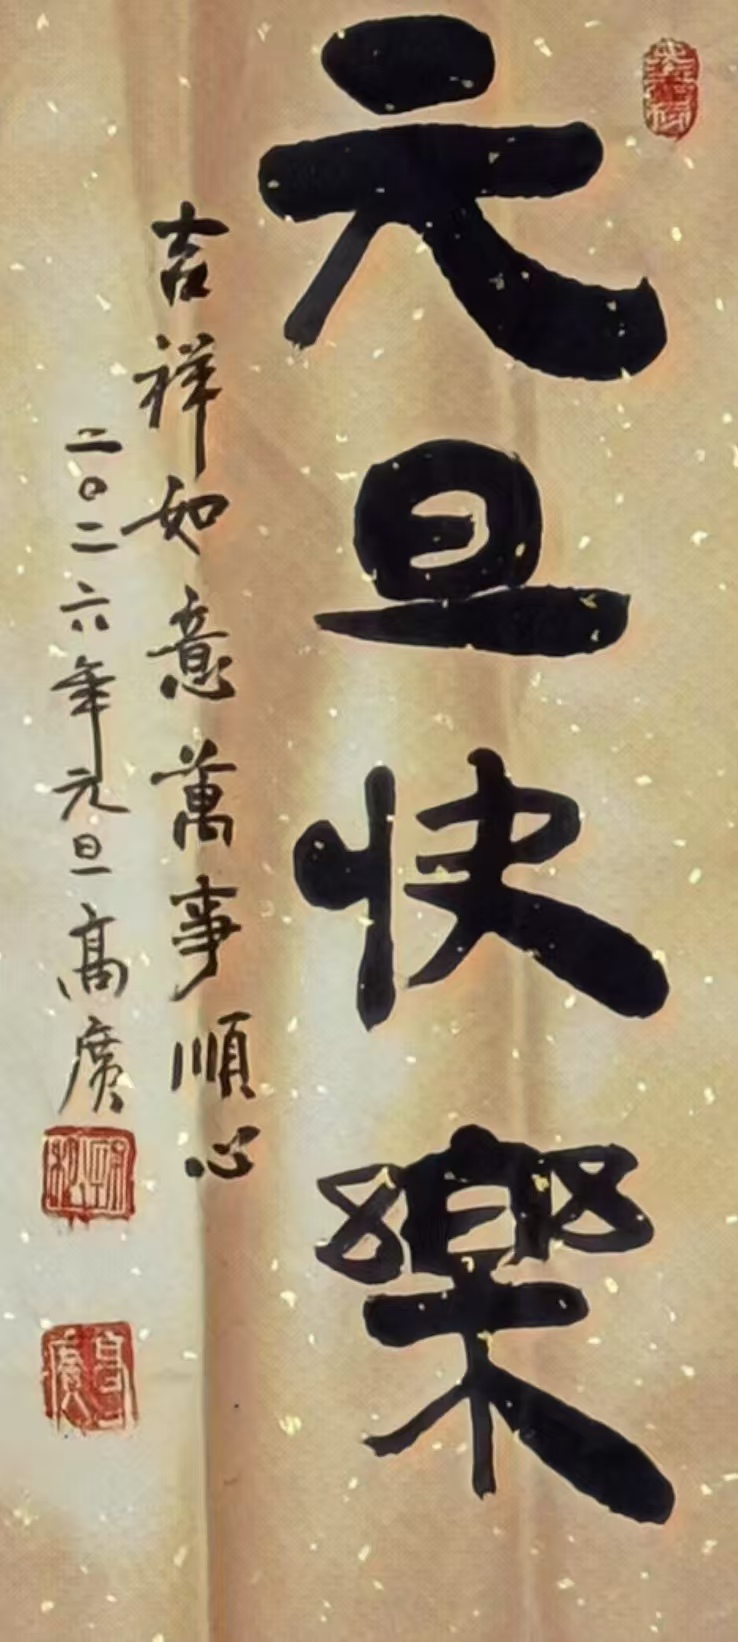 元旦快樂
吉祥如意萬事順心
二〇二六年元旦高廣
高廣